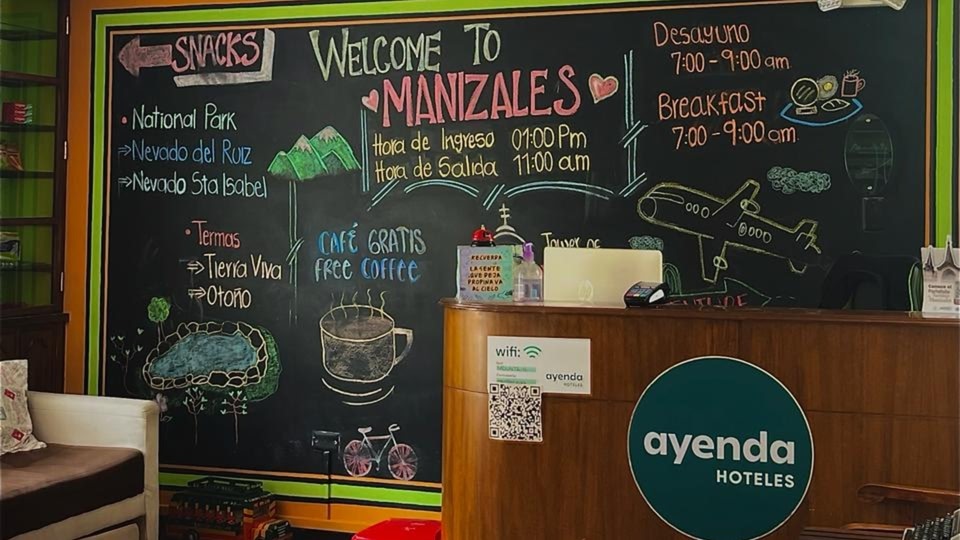 SNACKS
• National Park
⇒ Nevado del Ruiz
⇒ Nevado Sta Isabel
• Termas
⇒ Tierra Viva
⇒ Otoño
WELCOME TO
MANIZALES
Hora de Ingreso 01:00 Pm
Hora de Salida 11:00 am
CAFÉ GRATIS
FREE COFFEE
Desayuno
7:00 - 9:00 am
Breakfast
7:00 - 9:00 am.
Tower of
RECUERDA
LA GENTE
QUE DEJA
PROPINA VA
AL CIELO
hp
wifi:
ayenda
HOTELES
ayenda
HOTELES